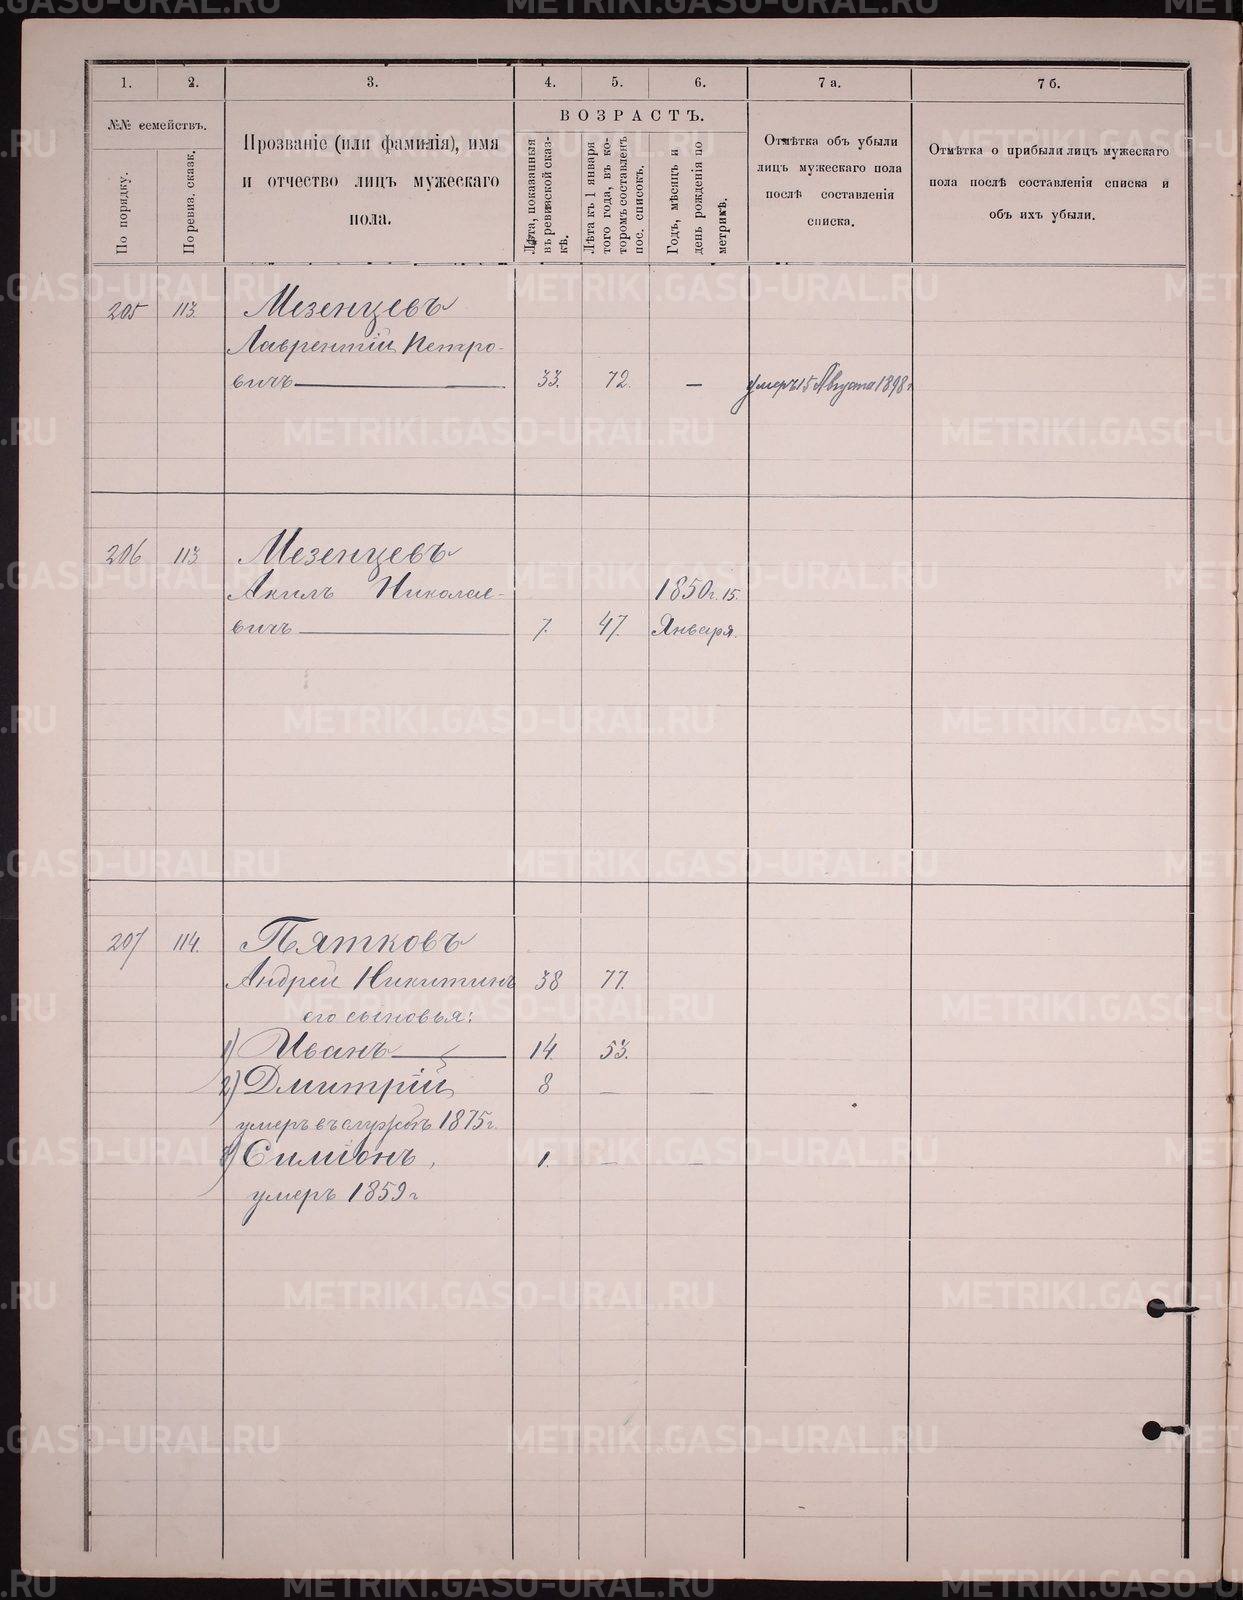 1. 2. 3. 4. 5. 6. 7 а. 7 б.
№№ семействъ.
По порядку.
По ревиз. сказк.
Прозваніе (или фамилія), имя
и отчество лицъ мужескаго
пола.
ВОЗРАСТЪ.
Лѣта, показанныя
въ ревизской сказ-
кѣ.
Лѣта къ 1 января
того года, въ ко-
торомъ составленъ
пос. списокъ.
Годъ, мѣсяцъ и
день рожденія по
метрикѣ.
Отмѣтка объ убыли
лицъ мужескаго пола
послѣ составленія
списка.
Отмѣтка о прибыли лицъ мужескаго
пола послѣ составленія списка и
объ ихъ убыли.
205 113. Мезенцевъ
Лаврентій Петро-
вичъ 33. 72. — умеръ 15 Августа 1898 г.
206 113 Мезенцевъ
Акилъ Николае- 1850 г. 15.
вичъ 7. 47. Января.
207 114. Пятковъ
Андрей Никитинъ 38 77.
его сыновья:
1) Иванъ 14. 53.
2) Дмитрій 8 — —
умеръ въ 1875 г.
3) Симіонъ, 1. — —
умеръ 1859 г
METRIKI.GASO-URAL.RU